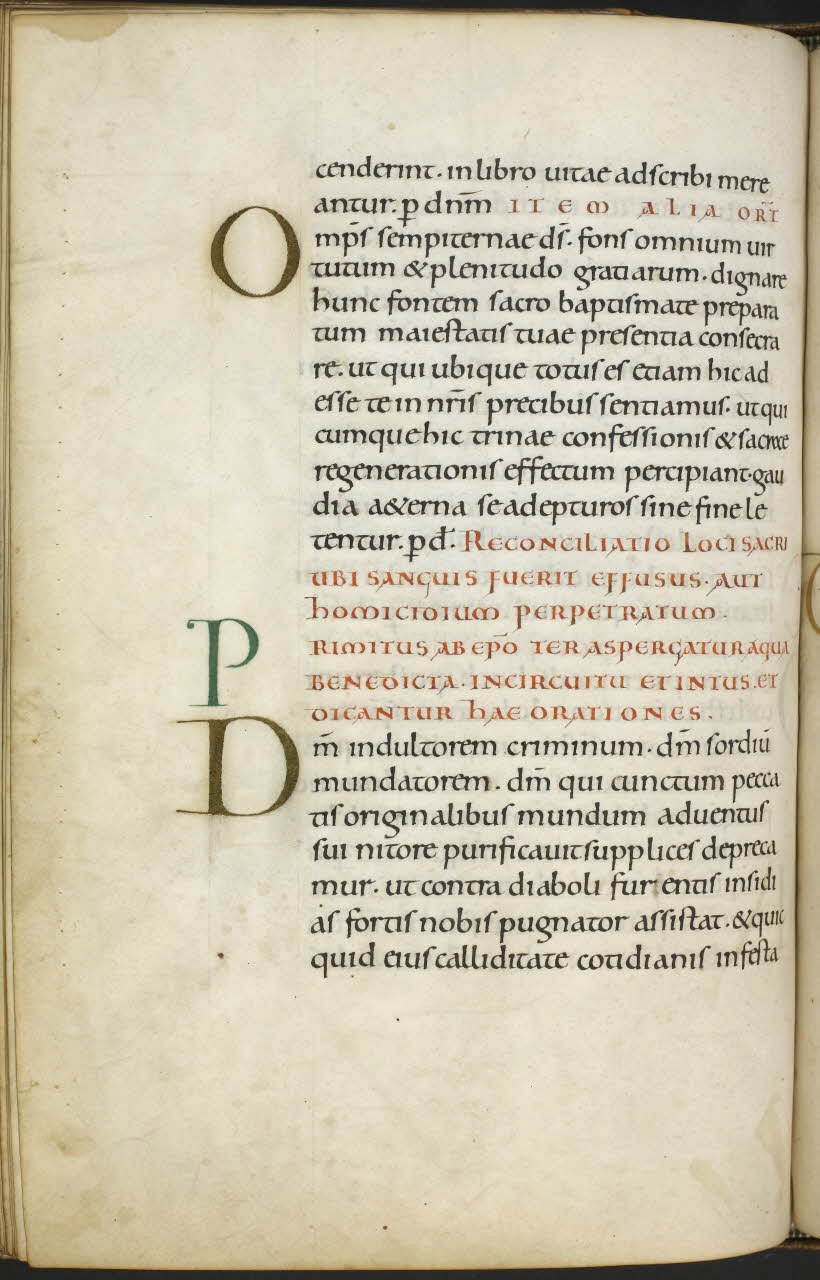 cenderint. in libro uitae adscribi mere
antur. p̄ dnm̄ ITEM ALIA ORT̄
Omp̄s sempiternae ds̄. fons omnium uir
tutum & plenitudo gratiarum. dignare
hunc fontem sacro baptismate prepara
tum maiestatis tuae presentia consecra
re. ut qui ubique totus es etiam hic ad
esse te in nr̄is precibus sentiamus. ut qui
cumque hic trinae confessionis & sacrae
regenerationis effectum percipiant. gau
dia a&erna se adepturos sine fine le
tentur. p̄ d̄. RECONCILIATIO LOCI SACRI
UBI SANGUIS FUERIT EFFUSUS. AUT
HOMICIDIUM PERPETRATUM.
PRIMITUS AB EPŌ TER ASPERGATUR AQUA
BENEDICTA. IN CIRCUITU ET INTUS. ET
DICANTUR HAE ORATIONES.
Dm̄ indultorem criminum. dm̄ sordiū
mundatorem. dm̄ qui cunctum pecca
tis originalibus mundum aduentus
sui nitore purificauit supplices depreca
mur. ut contra diaboli furentis insidi
as fortis nobis pugnator assistat. & quic
quid eius calliditate cotidianis infesta